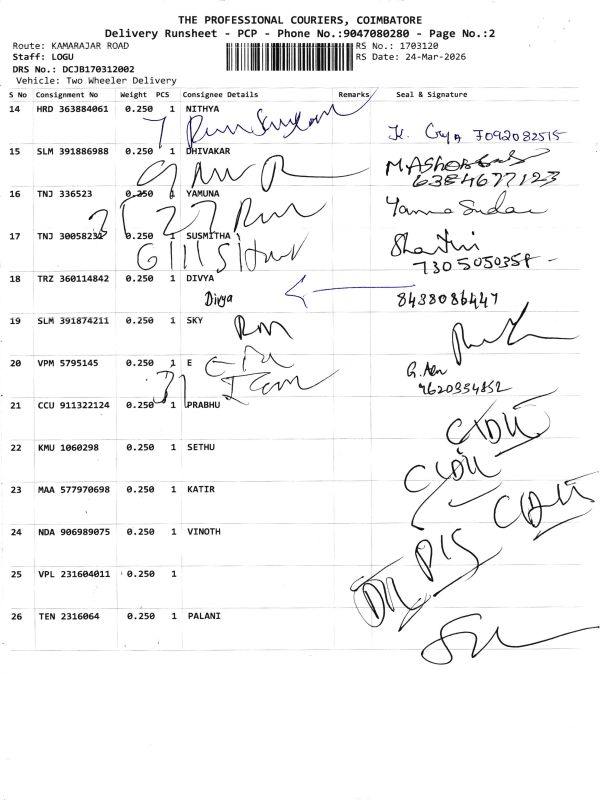 THE PROFESSIONAL COURIERS, COIMBATORE
Delivery Runsheet - PCP - Phone No.:9047080280 - Page No.:2
Route: KAMARAJAR ROAD RS No.: 1703120
Staff: LOGU RS Date: 24-Mar-2026
DRS No.: DCJB170312002
Vehicle: Two Wheeler Delivery
S No Consignment No Weight PCS Consignee Details Remarks Seal & Signature
14 HRD 363884061 0.250 1 NITHYA
7092082515
15 SLM 391886988 0.250 1 DHIVAKAR
6384677123
16 TNJ 336523 0.250 1 YAMUNA
17 TNJ 30058232 0.250 1 SUSMITHA
7305050354
18 TRZ 360114842 0.250 1 DIVYA
Divya 8438086447
19 SLM 391874211 0.250 1 SKY
20 VPM 5795145 0.250 1 E
21 CCU 911322124 0.250 1 PRABHU
22 KMU 1060298 0.250 1 SETHU
23 MAA 577970698 0.250 1 KATIR
24 NDA 906989075 0.250 1 VINOTH
25 VPL 231604011 0.250 1
26 TEN 2316064 0.250 1 PALANI